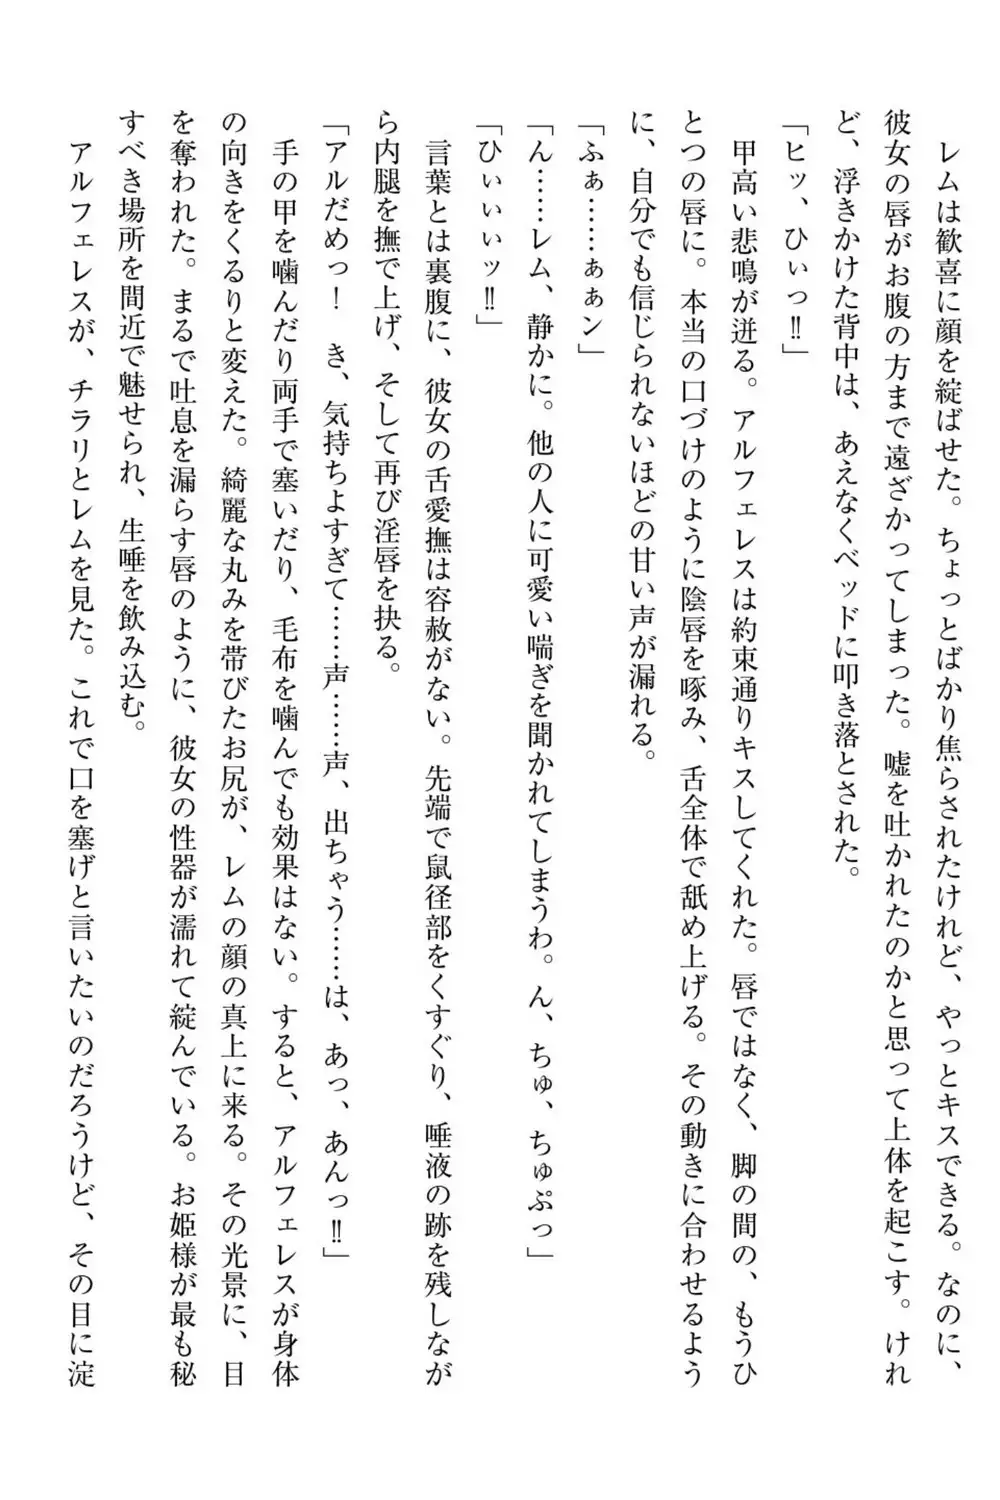 レムは歓喜に顔を綻ばせた。ちょっとばかり焦らされたけれど、やっとキスできる。なのに、
彼女の唇がお腹の方まで遠ざかってしまった。嘘を吐かれたのかと思って上体を起こす。けれ
ど、浮きかけた背中は、あえなくベッドに叩き落とされた。
「ヒッ、ひぃっ‼」
甲高い悲鳴が迸る。アルフェレスは約束通りキスしてくれた。唇ではなく、脚の間の、もうひ
とつの唇に。本当の口づけのように陰唇を啄み、舌全体で舐め上げる。その動きに合わせるよう
に、自分でも信じられないほどの甘い声が漏れる。
「ふぁ……ぁぁン」
「ん……レム、静かに。他の人に可愛い喘ぎを聞かれてしまうわ。ん、ちゅ、ちゅぷっ」
「ひぃぃぃッ‼」
言葉とは裏腹に、彼女の舌愛撫は容赦がない。先端で鼠径部をくすぐり、唾液の跡を残しなが
ら内腿を撫で上げ、そして再び淫唇を抉る。
「アルだめっ！　き、気持ちよすぎて……声……声、出ちゃう……は、あっ、あんっ‼」
手の甲を噛んだり両手で塞いだり、毛布を噛んでも効果はない。すると、アルフェレスが身体
の向きをくるりと変えた。綺麗な丸みを帯びたお尻が、レムの顔の真上に来る。その光景に、目
を奪われた。まるで吐息を漏らす唇のように、彼女の性器が濡れて綻んでいる。お姫様が最も秘
すべき場所を間近で魅せられ、生唾を飲み込む。
アルフェレスが、チラリとレムを見た。これで口を塞げと言いたいのだろうけど、その目に淀